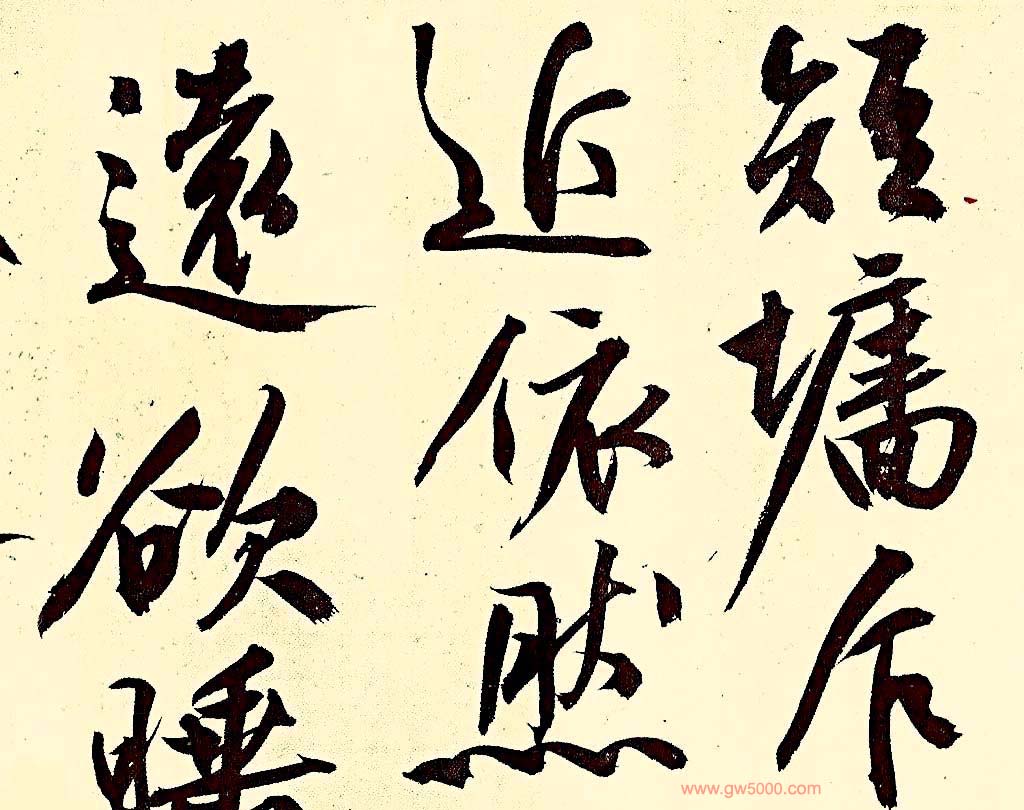 短墉乍
近依然
遠欲睡
www.gw5000.com